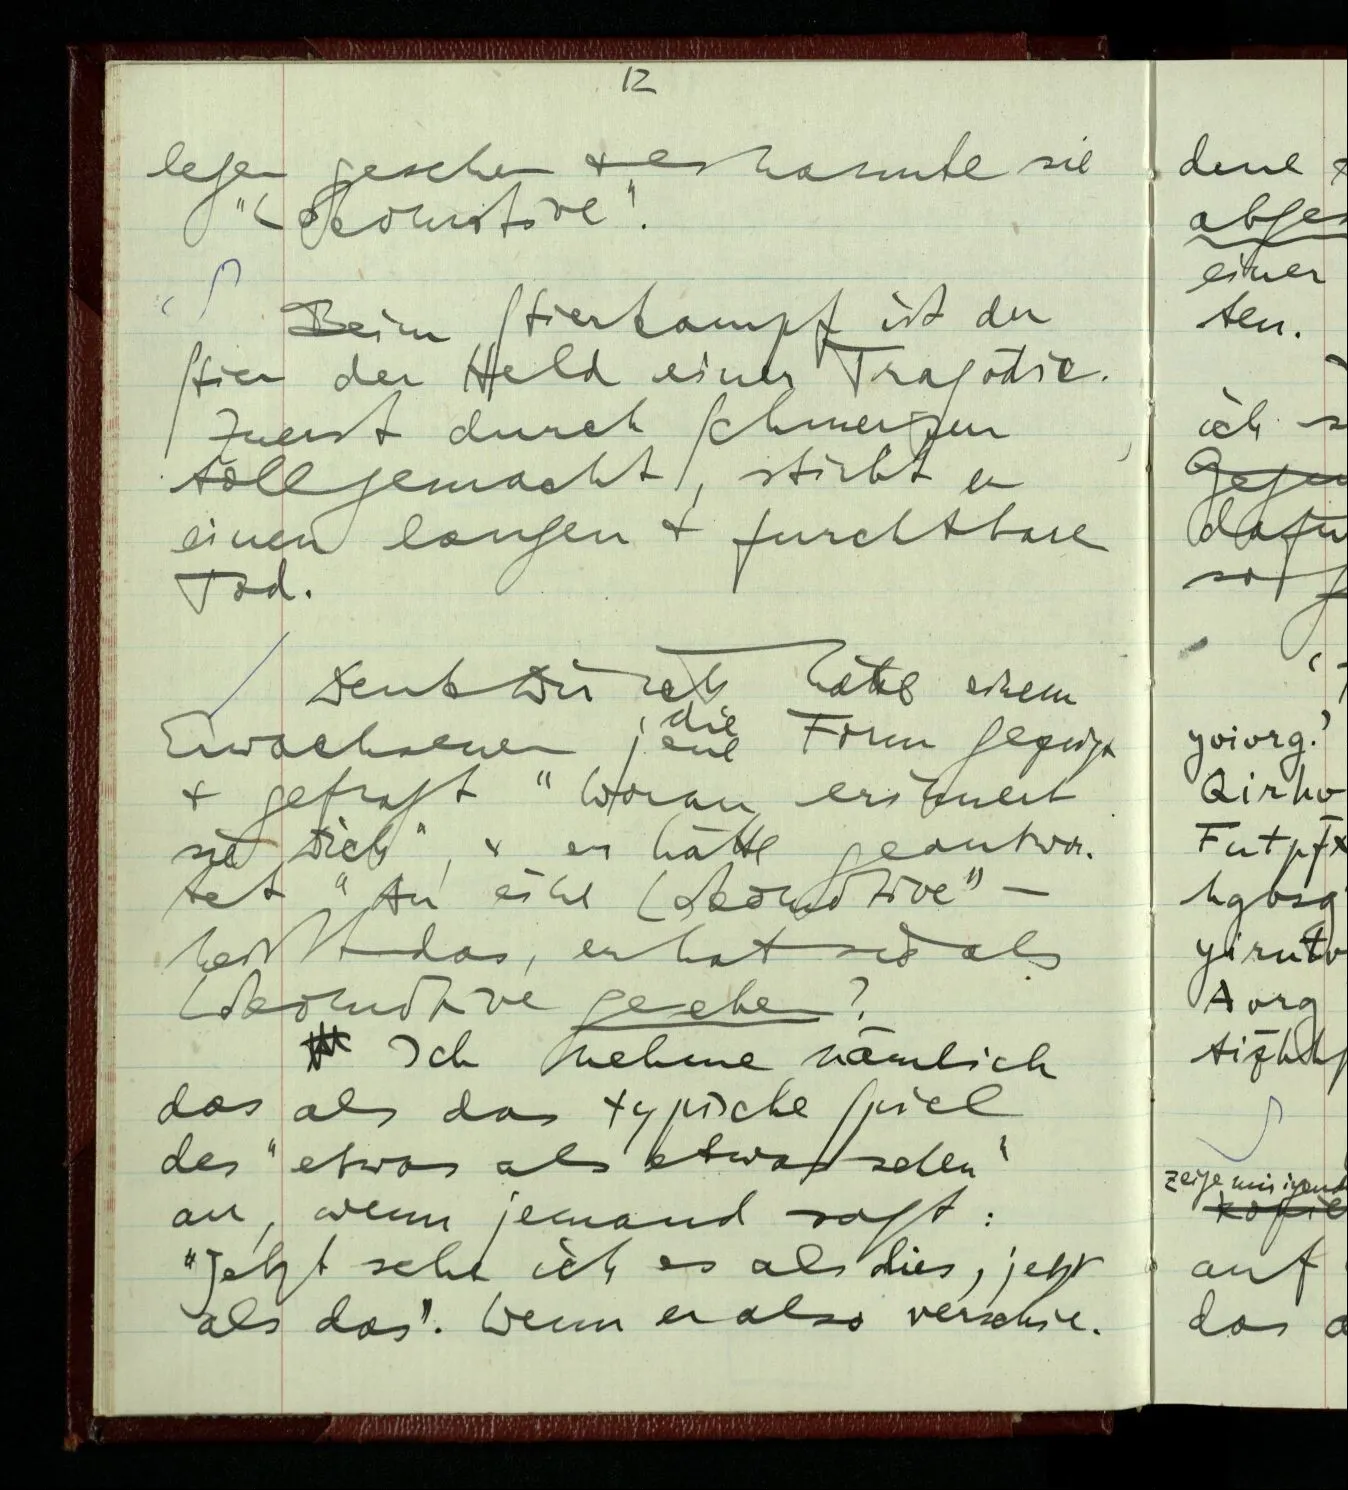 12
legen gesehen + es nannte sie
"Lokomotive".
Beim Stierkampf ist der
Stier der Held einer Tragödie.
Zuerst durch Schmerzen
tollgemacht, stirbt er
einen langen + furchtbaren
Tod.
Denk Dir ich hätte einem
Erwachsenen jene die Form gezeigt
+ gefragt "Woran erinnert
sie Dich", + er hätte geantwor-
tet "An eine Lokomotive" –
heißt das, er hat sie als
Lokomotive gesehen?
Ich nehme nämlich
das als das typische Spiel
des "etwas als etwas sehen"
an, wenn jemand sagt:
"Jetzt sehe ich es als dies, jetzt
als das". Wenn er also verschie-
dene +
einer
ten.
ich
yviorg.
Aorg
zeige mir
auf
das